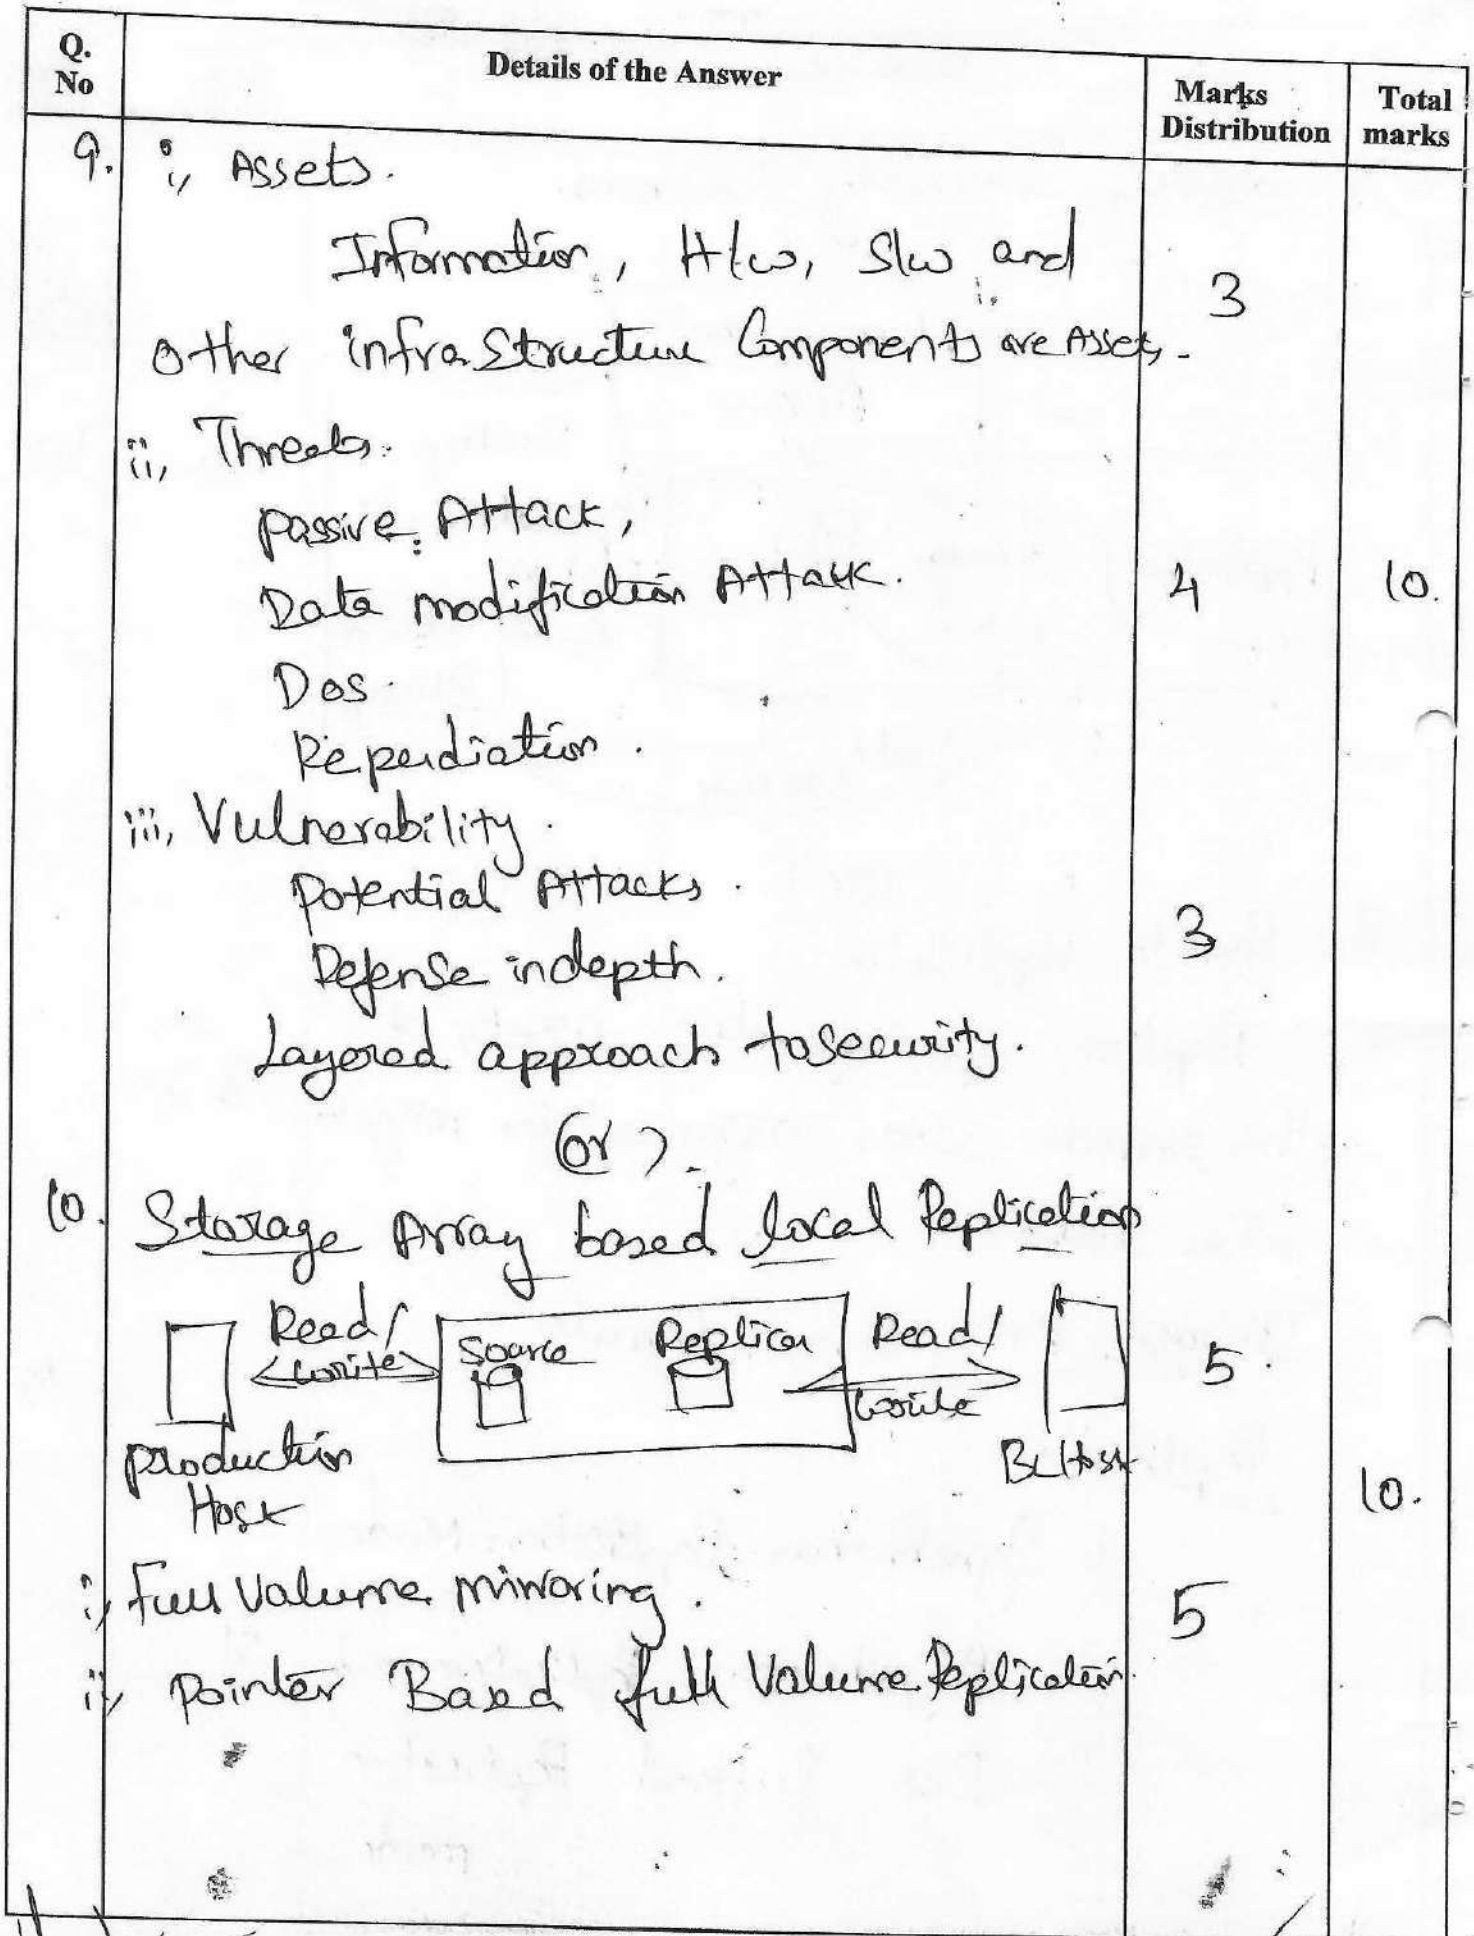 Q. No
Details of the Answer
Marks Distribution
Total marks
9. i, Assets.
Information, H/w, S/w and
3
Other infraStructure Components are Assets.
ii, Threats.
passive Attack,
Data modification Attack.
4
10.
Dos.
Repudiation.
iii, Vulnerability.
Potential Attacks.
3
Defense indepth.
Layered approach to security.
(or).
10. Storage Array based local Replication
Read/
write
Source
Replica
Read/
write
5.
production
Host
BC Host
10.
i, Full Volume mirroring.
5
ii, Pointer Based full Volume Replication.